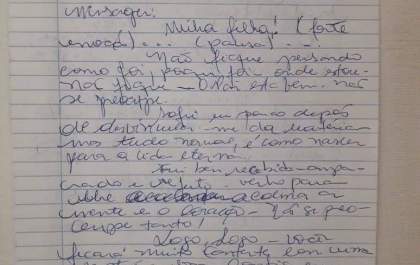 Mensagem:
Minha filha! (forte
emoção) ... (pausa) ...
Não fique pensando
como foi, porque foi - onde estou -
não fique - O Pai está bem. não
se preocupe.
Sofri um pouco depois
de desvincular-me da matéria
mas tudo normal, é como nascer
para a vida eterna.
Fui bem recebido - ampa-
rado e venho para
lhe acalma a
mente e o coração - Não se preo-
cupe tanto!
Logo, logo - você
ficará muito contente com uma